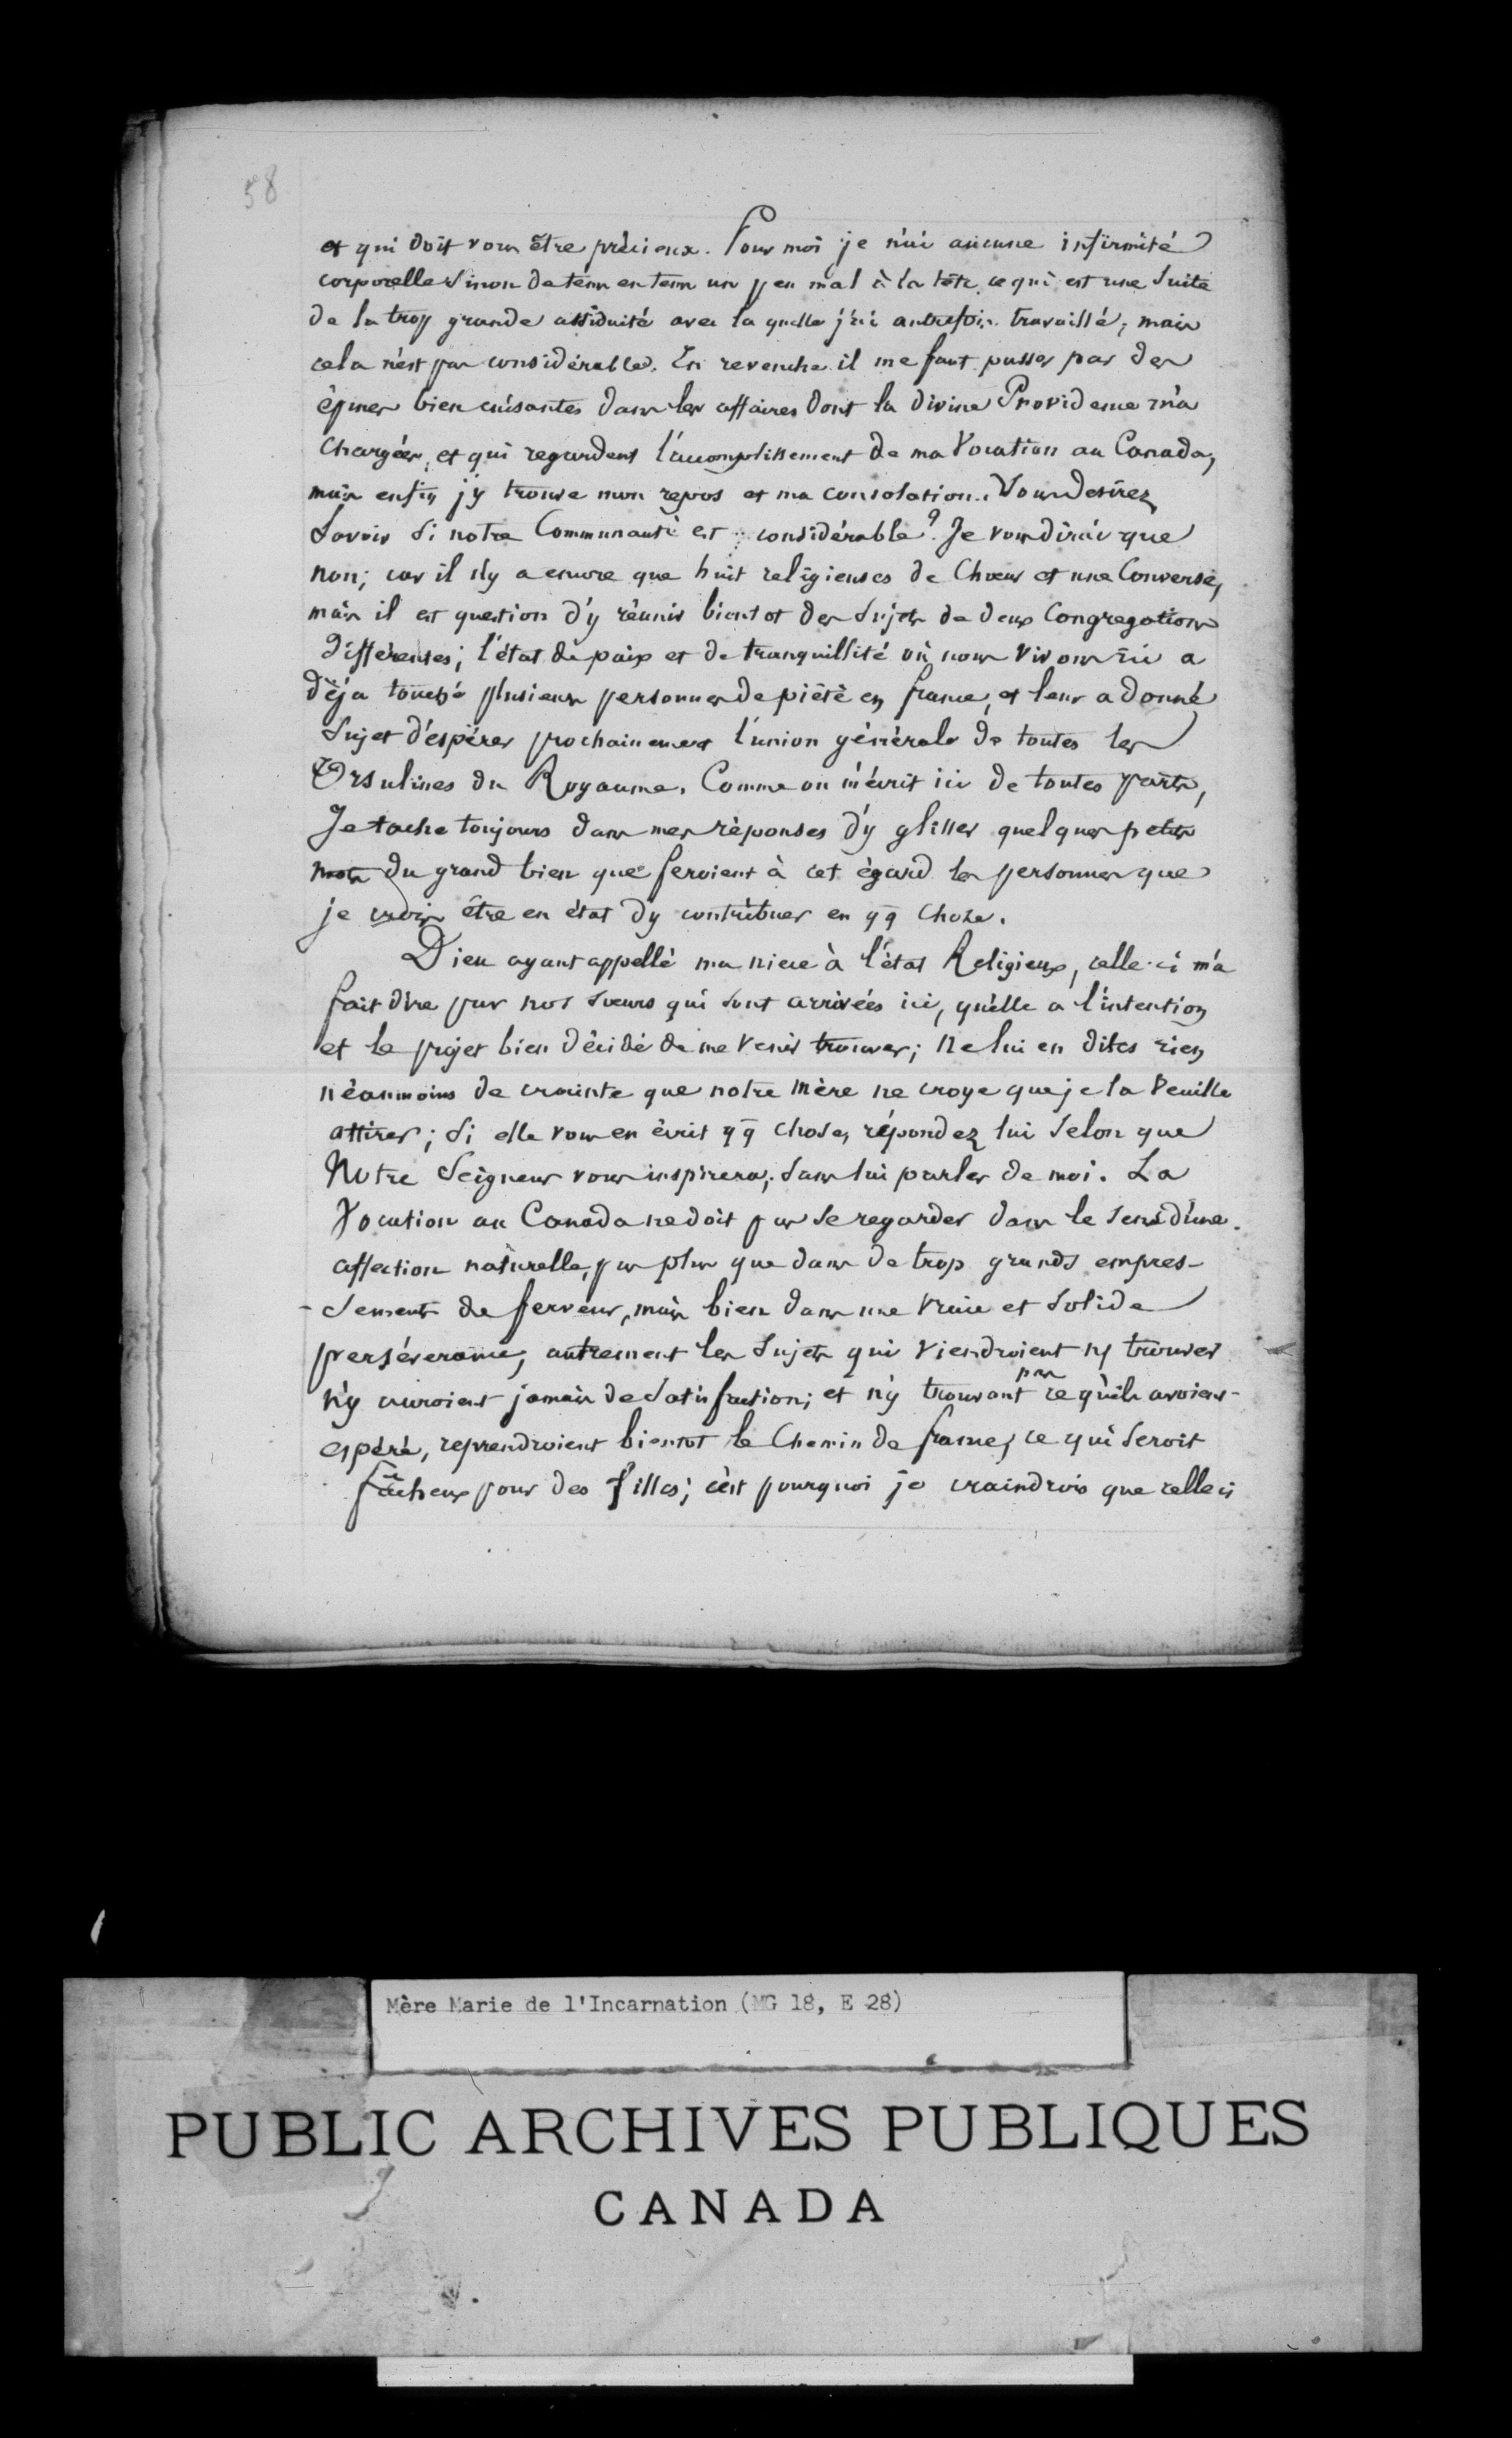 58
et qui doit vous être précieux. Pour moi je n'ai aucune infirmité
corporelle Sinon de tems en tems un peu mal à la tête, ce qui est une Suite
de la trop grande assiduité avec la quelle j'ai autrefois travaillé; mais
cela n'est pas considérable. En revenche il me faut passer par des
épines bien cuisantes dans les affaires dont la divine Providence m'a
Chargées, et qui regardent l'accomplissement de ma Vocation au Canada,
mais enfin j'y trouve mon repos et ma consolation. Vous desirez
Savoir Si notre Communauté est considérable? Je vous dirai que
non; car il n'y a encore que huit religieuses de Chœur et une Converse,
mais il est question d'y réunir bientot des Sujets de deux Congregations
différentes; l'état de paix et de tranquillité où nous vivons ici a
déja touché plusieurs personnes de piété en france, et leur a donné
Sujet d'espérer prochainement l'union générale de toutes les
Orsulines du Royaume. Comme on m'écrit ici de toutes parts,
Je tache toujours dans mes réponses d'y glisser quelques petits
mots du grand bien que feroient à cet égard les personnes que
je crois être en état d'y contribuer en qq choze.
Dieu ayant appellé ma niece à l'état Religieux, celle-ci m'a
fait dire par nos Sœurs qui Sont arrivées ici, qu'elle a l'intention
et le projet bien décidé de me venir trouver; Ne lui en dites rien
néanmoins de crainte que notre Mère ne croye que je la Veuille
attirer; Si elle vous en écrit qq chose, répondez lui Selon que
Notre Seigneur vous inspirera, Sans lui parler de moi. La
Vocation au Canada ne doit pas Se regarder dans le Sens d'une
affection naturelle, pas plus que dans de trop grands empres-
-Sements de ferveur, mais bien dans une Vraie et Solide
persévérance, autrement les Sujets qui Viendroient ny trouver
n'y auroient jamais de Satisfaction; et n'y trouvant pas ce qu'ils avoient
espéré, reprendroient bientot le Chemin de france, ce qui Seroit
fâcheux pour des filles; c'est pourquoi je craindrois que celle ci
Mère Marie de l'Incarnation (MG 18, E 28)
PUBLIC ARCHIVES PUBLIQUES
CANADA